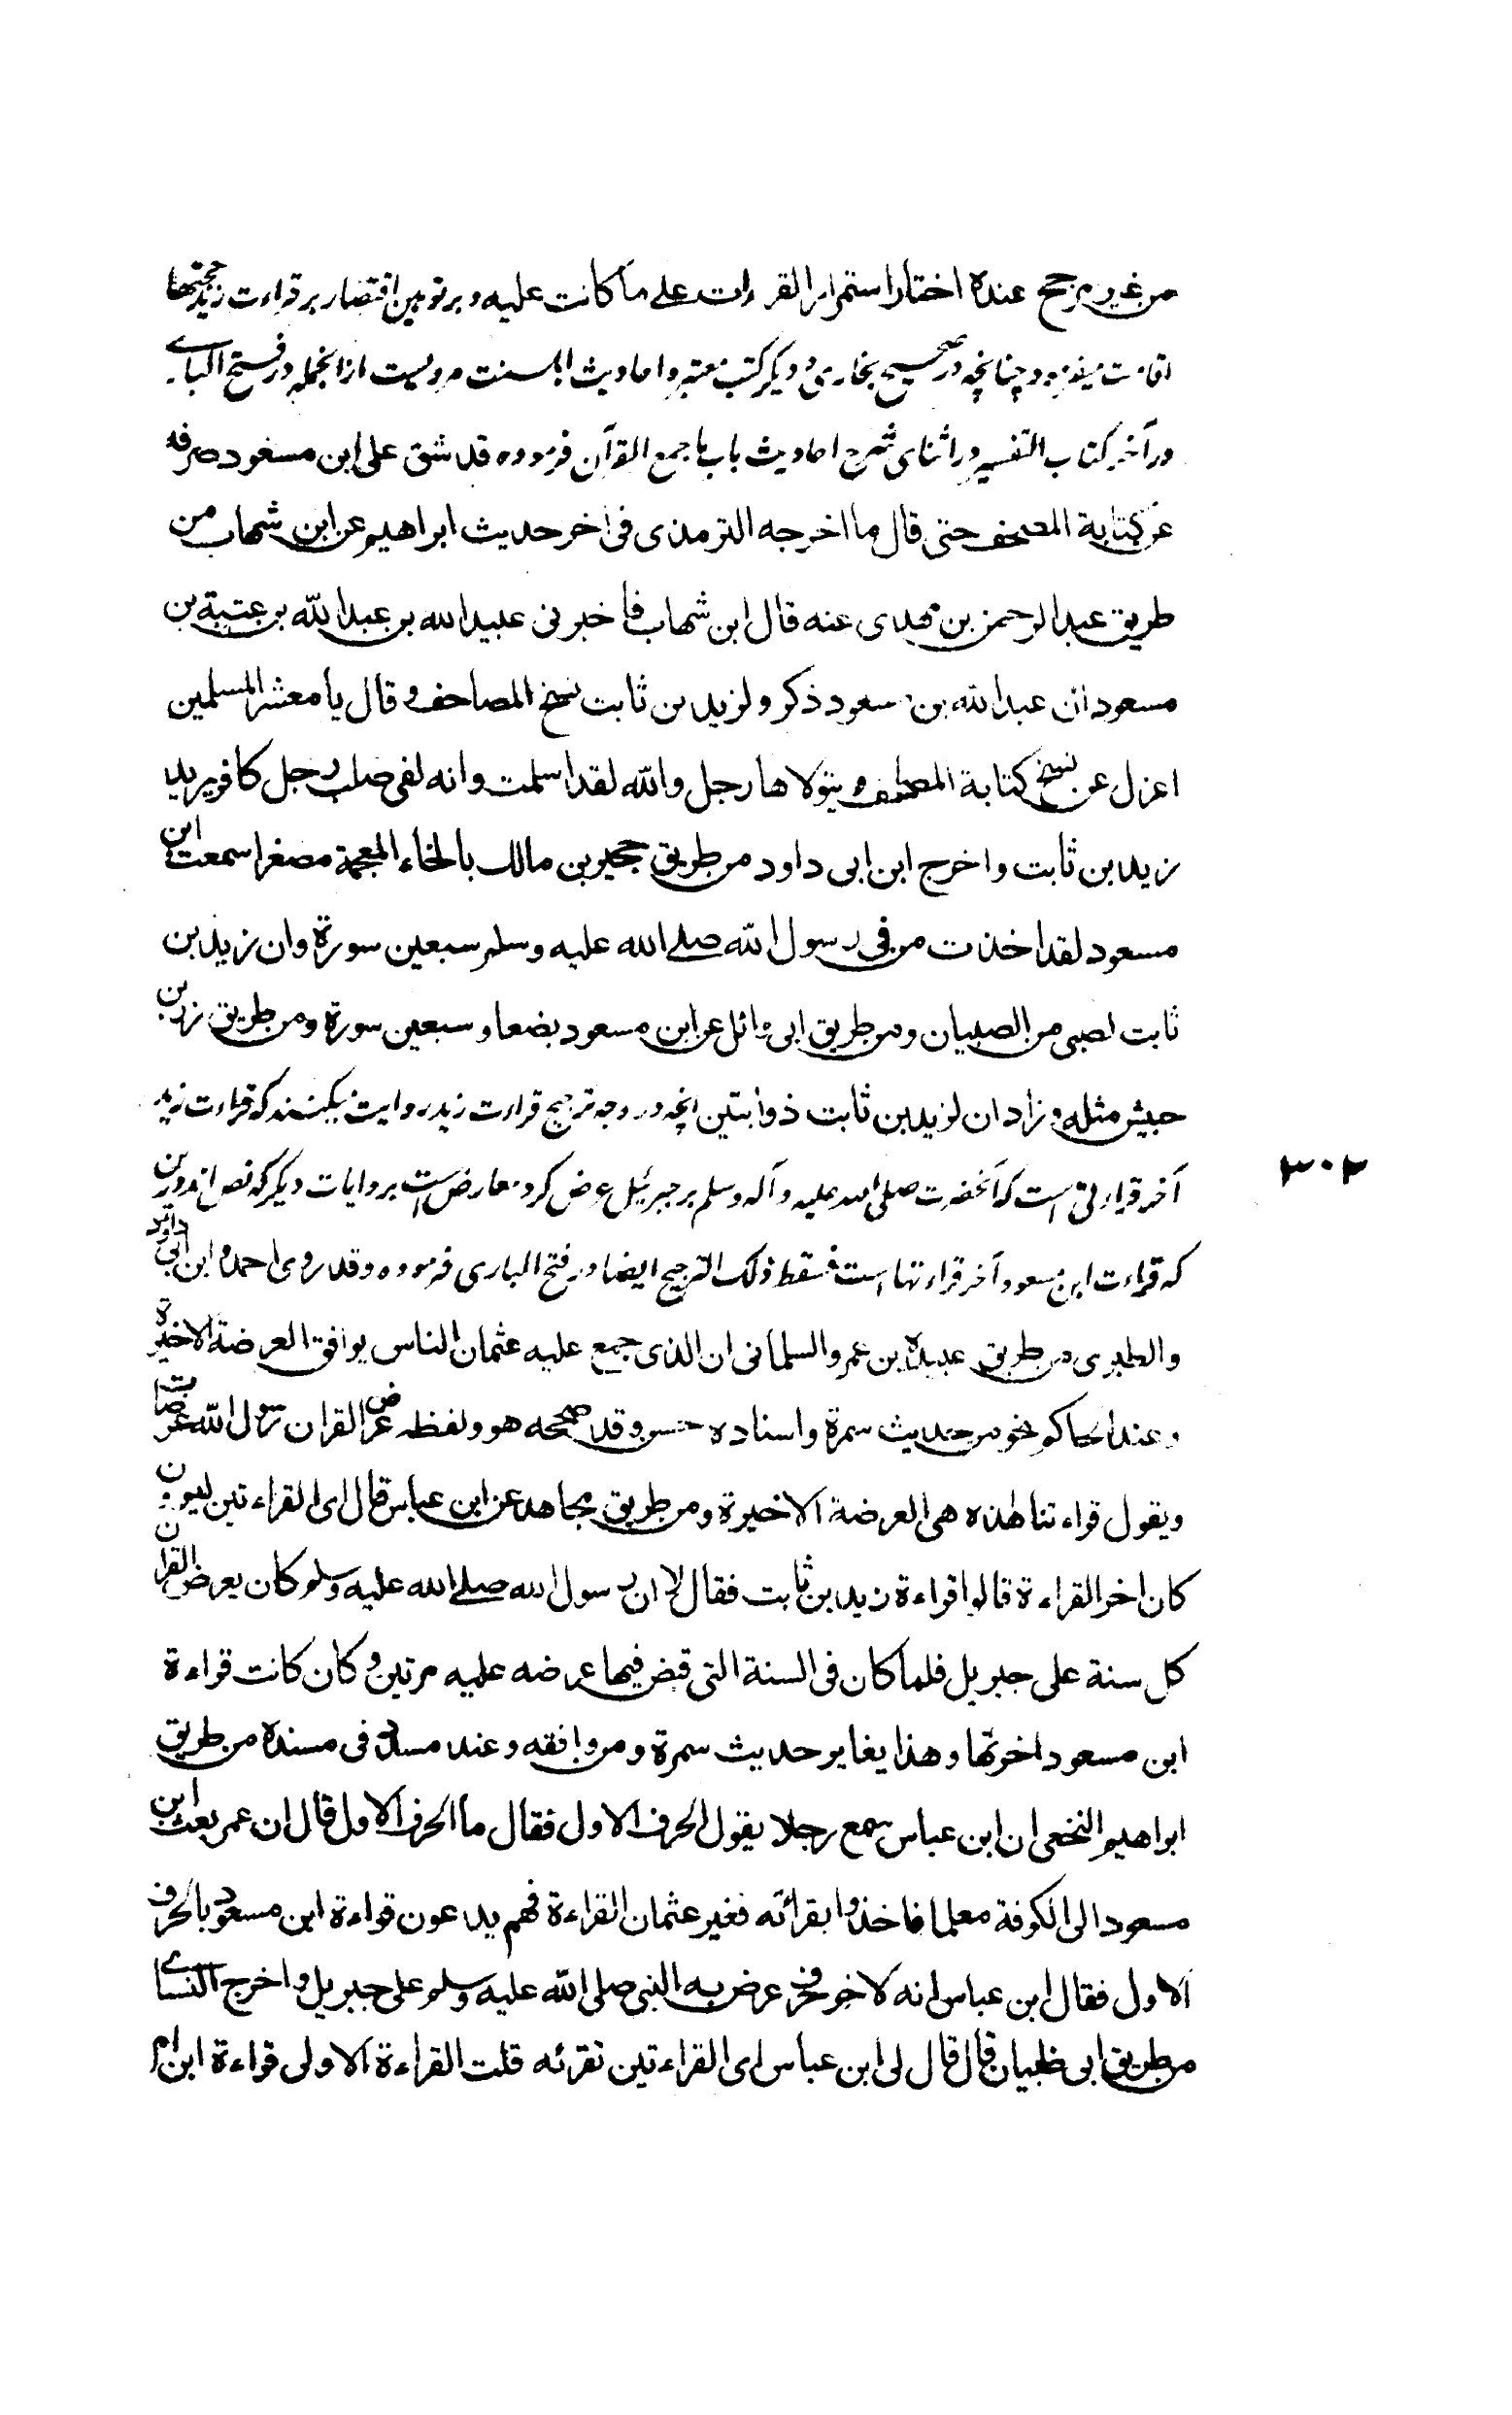 من غير مرجح عنده اختار استمرار القراات على ما كانت عليه و بر توهين اقتصار بر قراءت زيد حجتها
اقامت ميفرمود چنانچه در صحيح بخارى و ديگر كتب معتبره احاديث اهلسنت مرويست ازانجمله در فتح البارے
در آخر كتاب التفسير در اثناى شرح احاديث باب جمع القرآن فرموده قد شق على ابن مسعود صرفه
عن كتابة المصحف حتى قال ما اخرجه الترمذى فى اخر حديث ابراهيم عن ابن شهاب من
طريق عبد الرحمن بن مهدى عنه قال ابن شهاب فاخبرنى عبيد الله بن عبد الله بن عتبة بن
مسعود ان عبد الله بن مسعود ذكر و لزيد بن ثابت نسخ المصاحف و قال يا معشر المسلمين
اعزل عن نسخ كتابة المصاحف و يتولاها رجل والله لقد اسلمت وانه لفى صلب رجل كافر يريد
زيد بن ثابت واخرج ابن ابى داود من طريق خمير بن مالك بالخاء المعجمة مصغرا سمعت ابن
مسعود لقد اخذت من فى رسول الله صلے الله عليه وسلم سبعين سورة وان زيد بن
ثابت لصبى من الصبيان ومن طريق ابى وائل عن ابن مسعود بضعا و سبعين سورة ومن طريق زر بن
حبيش مثله و زاد ان لزيد بن ثابت ذوابتين انچه در وجه ترجيح قراءت زيد روايت ميكنند كه قراءت زيد
آخر قراءتى است كه آنحضرت صلى الله عليه وآله وسلم بر جبرئيل عرض كرد معارض است بروايات ديگر كه نص اند درين
كه قراءت ابن مسعود آخر قراءتها است فسقط ذلك الترجيح ايضا در فتح البارى فرموده وقد روى احمد و ابن ابى داود
والطبرى من طريق عبيدة بن عمرو السلمانى ان الذى جمع عليه عثمان الناس يوافق العرضة الاخيرة
و عند الحاكم نحو من حديث سمرة واسناده حسن و قد صححه هو ولفظه عرض القران على رسول الله عرضات
ويقول قراءتنا هذه هى العرضة الاخيرة ومن طريق مجاهد عن ابن عباس قال اى القراءتين ترون
كان اخر القراءة قالوا قراءة زيد بن ثابت فقال لا ان رسول الله صلے الله عليه وسلم كان يعرض القران
كل سنة على جبريل فلما كان فى السنة التى قبض فيها عرضه عليه مرتين و كان كانت قراءة
ابن مسعود اخرتها و هذا يغاير حديث سمرة ومن وافقه و عند مسدد فى مسنده من طريق
ابراهيم النخعى ان ابن عباس سمع رجلا يقول الحرف الاول فقال ما الحرف الاول قال ان عمر بعث ابن
مسعود الى الكوفة معلما فاخذوا بقرائته فغير عثمان القراءة فهم يدعون قراءة ابن مسعود بالحرف
الاول فقال ابن عباس انه لاخر حرف عرض به النبى صلى الله عليه وسلم على جبريل و اخرج النساے
من طريق ابى ظبيان قال قال لى ابن عباس اى القراءتين تقرئه قلت القراءة الاولى قراءة ابن ام
٣٠٢